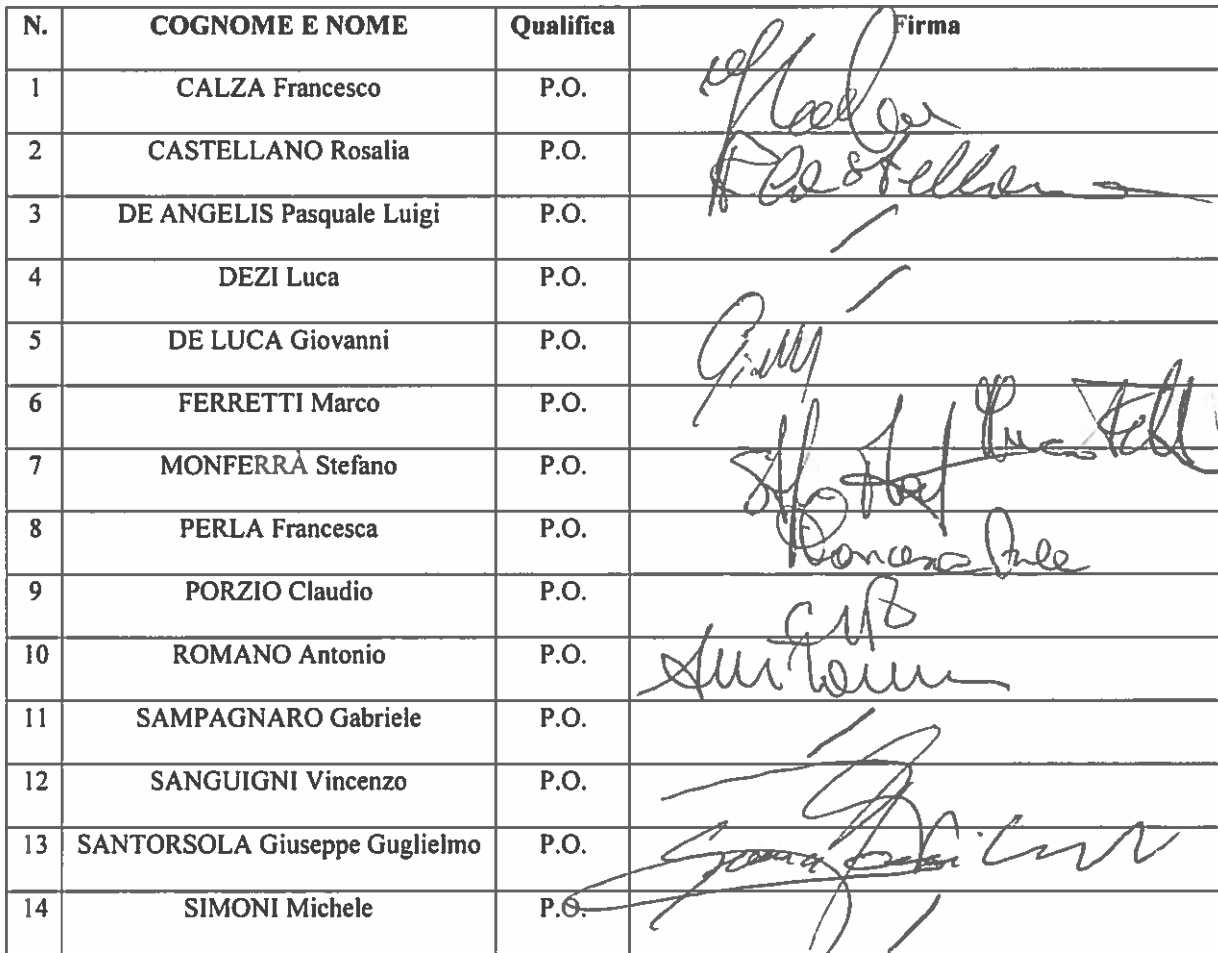 N. COGNOME E NOME Qualifica Firma
1 CALZA Francesco P.O.
2 CASTELLANO Rosalia P.O.
3 DE ANGELIS Pasquale Luigi P.O. /
4 DEZI Luca P.O. /
5 DE LUCA Giovanni P.O.
6 FERRETTI Marco P.O.
7 MONFERRÀ Stefano P.O.
8 PERLA Francesca P.O. Francesca Perla
9 PORZIO Claudio P.O.
10 ROMANO Antonio P.O.
11 SAMPAGNARO Gabriele P.O. /
12 SANGUIGNI Vincenzo P.O.
13 SANTORSOLA Giuseppe Guglielmo P.O.
14 SIMONI Michele P.O. /